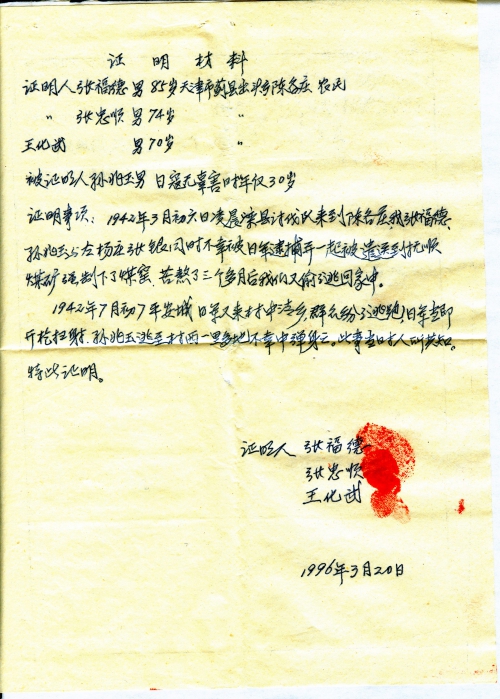 证明材料
证明人张福德 男 85岁天津市蓟县出头岭陈各庄 农民
〃 张忠顺 男 74岁 〃
王化武 男 70岁 〃
被证明人孙兆玉男 日寇无辜害时年仅30岁
证明事项：1942年3月初六日凌晨滦县讨伐队来到陈各庄我张福德、
孙兆玉与左杨庄张银同时不幸被日军逮捕并一起被遣送到抚顺
煤矿强制下了煤窑 苦熬了三个多月后我们又偷偷逃回家中。
1942年7月初7 日军又来村中清乡群众纷纷逃跑，日军当即
开枪扫射。孙兆玉逃至村西一里多地不幸中弹身亡。此事当时人所共知。
特此证明。
证明人 张福德
张忠顺
王化武
1996年3月20日